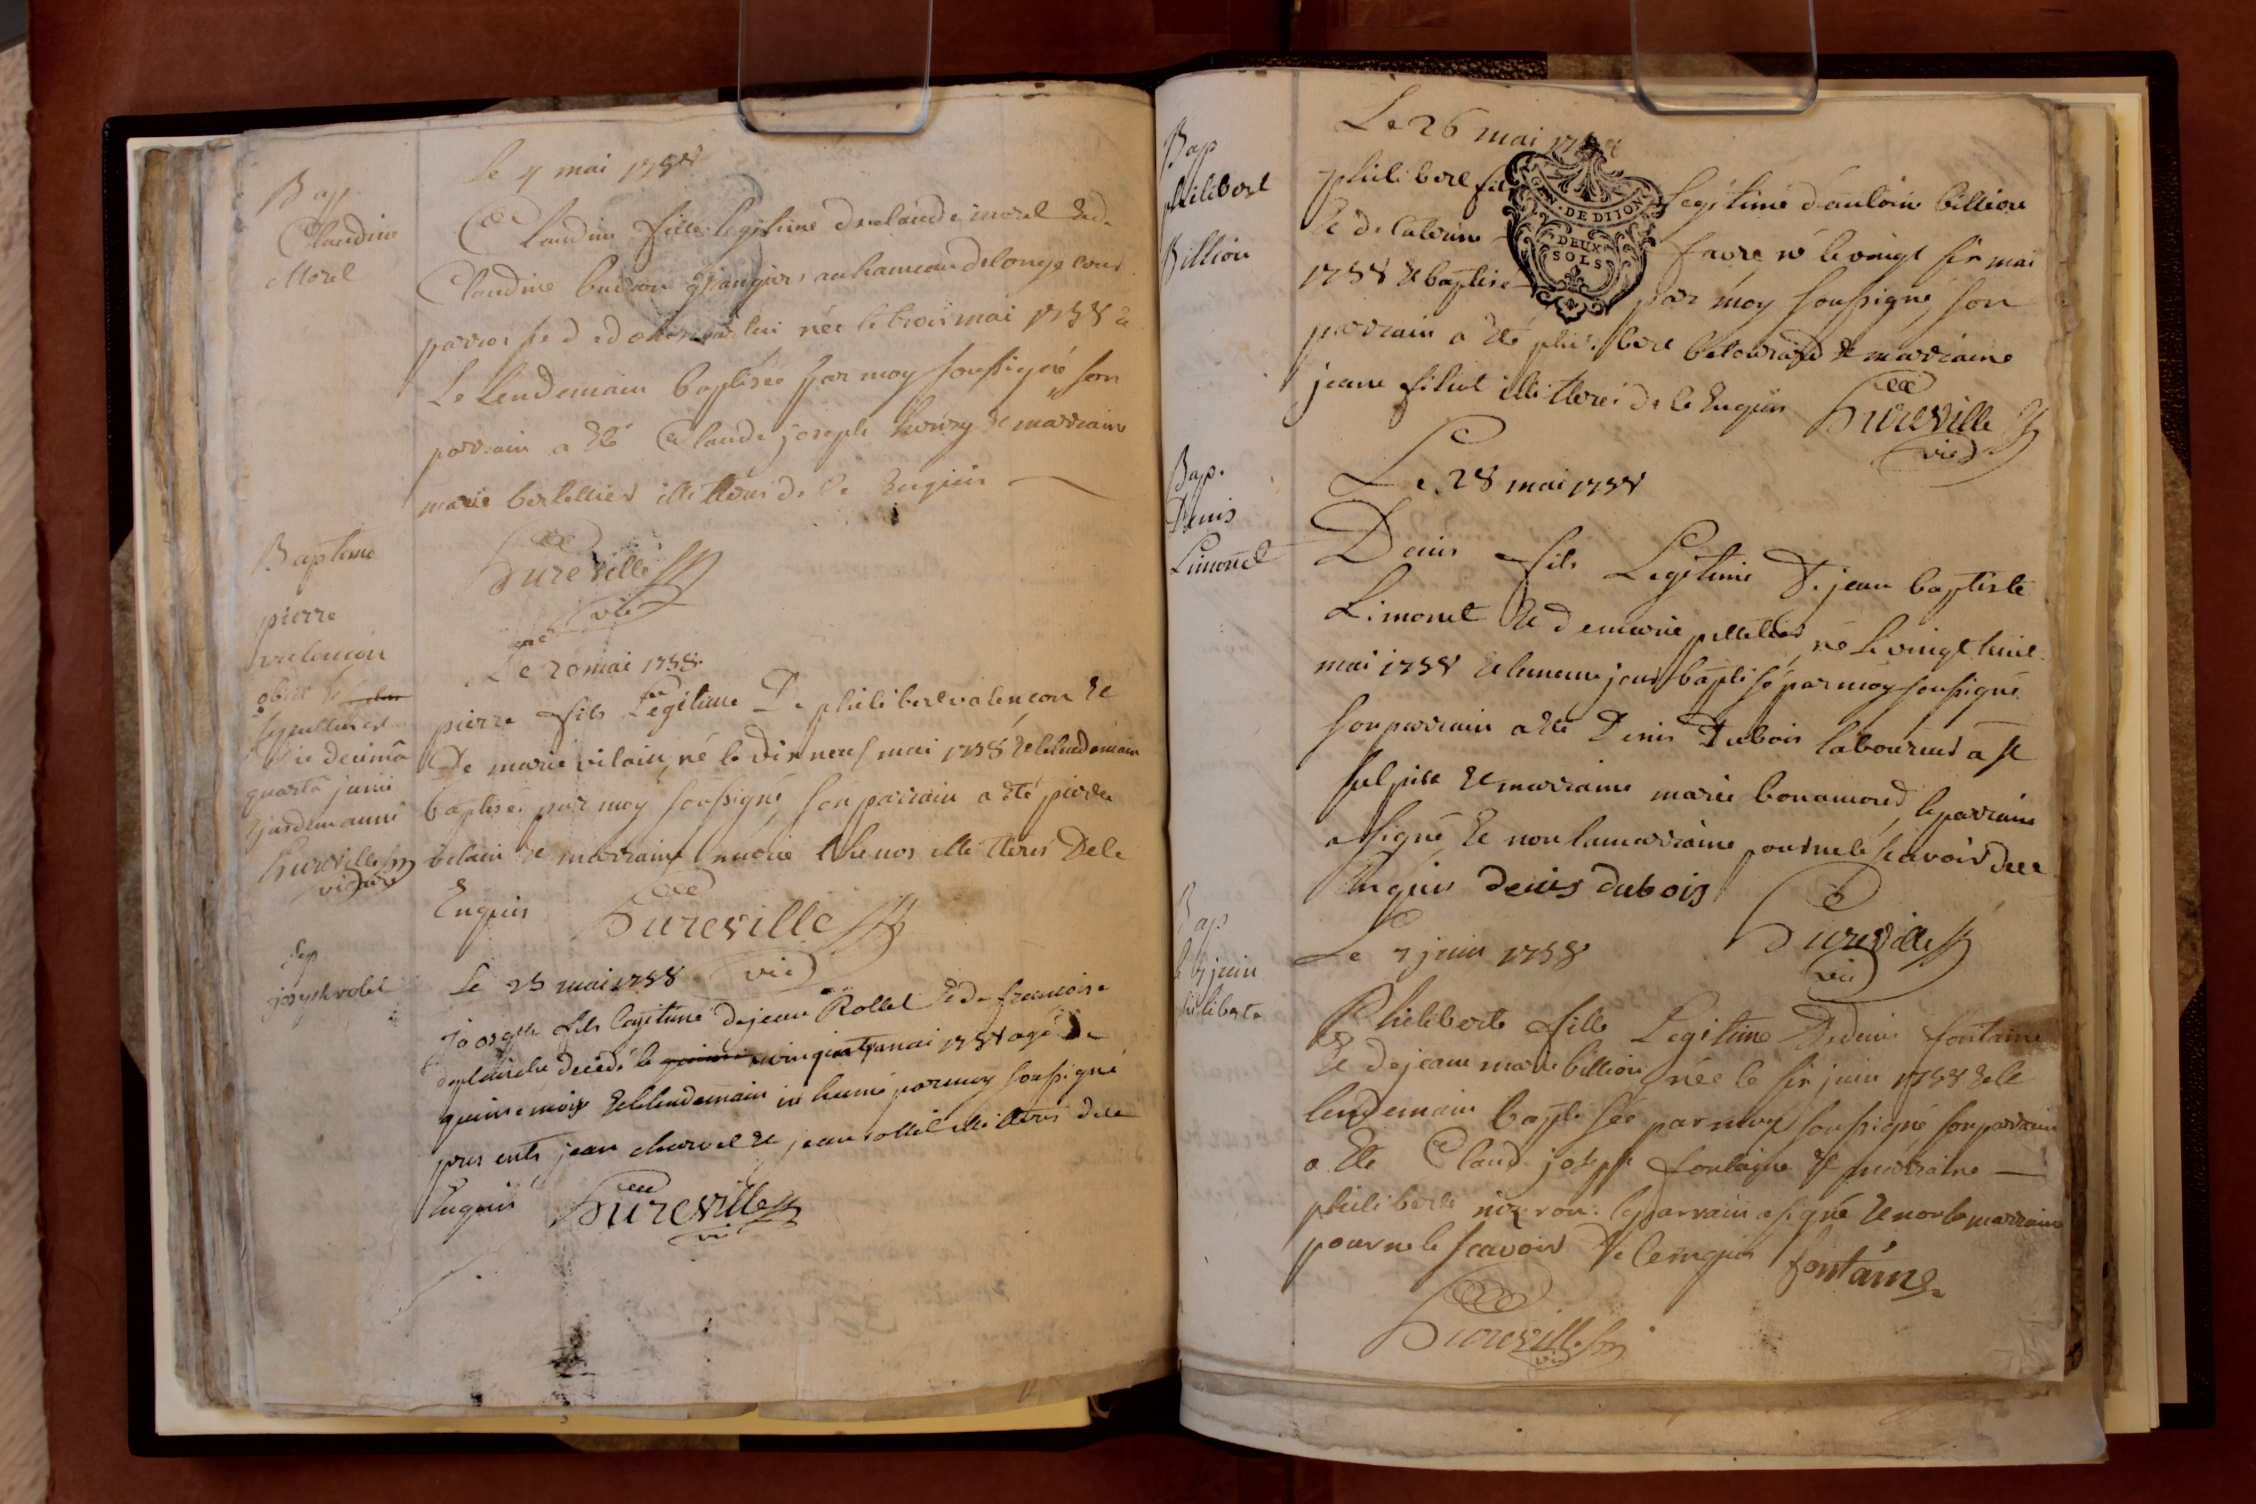 Bap
Claudine
Morel
Le 4 mai 1758
Claudine fille legitime de claude morel et de
Claudine buiron grangers au hameau de longe cour
paroisse de né le trois mai 1758 et
Le Lendemain baptisée par moy soussigné son
parrain a été Claude joseph et marraine
marie bertellier illitterés de ce Enquis
Dureville
vic
Baptême
pierre
valencon
obiit
sepultus est
die decimâ
quartâ junii
ejusdem anni
Dureville
vicaire
Le 20 mai 1758
pierre fils Legitime De philibert valencon et
De marie vilain, né le dix neuf mai 1758 et le lendemain
baptisé par moy soussigné, son parrain a été pierre
belain et marraine marie illitterés De ce
Enquis Dureville
vic
Sep
joseph rolet
Le 25 mai 1758
joseph fils legitime de jean Rollet et de francoise
deplanche decedé le vingt quatre mai 1758 agé De
quinze mois et le lendemain inhumé par moy soussigné
presents jean charvet et jean rollet illitterés de ce
Enquis Dureville
vic
Bap
philibert
Billion
Le 26 mai 1758
philibert fils legitime d'antoine billion
et de Catherine favre né le vingt six mai
1758 et baptisé par moy soussigné, son
parrain a été philibert et marraine
jeane filiot illitterés de ce Enquis Dureville
vic
GEN. DE DIJON
DEUX
SOLS
Bap.
Denis
Limonet
Le 28 mai 1758
Denis fils Legitime De jean baptiste
Limonet et de marie pelletier, né le vingt huit
mai 1758 et le meme jour baptisé par moy soussigné
son parrain a été Denis Dubois laboureur a st
sulpice et marraine marie bonamour, le parrain
a signé, et non la marraine pour ne le scavoir de ce
Enquis denis dubois
Dureville
vic
Bap
le 7 juin
philiberte
Le 7 juin 1758
Philiberte fille Legitime De denis fontaine
et de jeane marie billion, née le six juin 1758 et le
lendemain baptisée par moy soussigné son parrain
a été Claude joseph fontaine et marraine
philiberte le parrain a signé et non la marraine
pour ne le scavoir de ce enquis fontaine
Dureville
vic